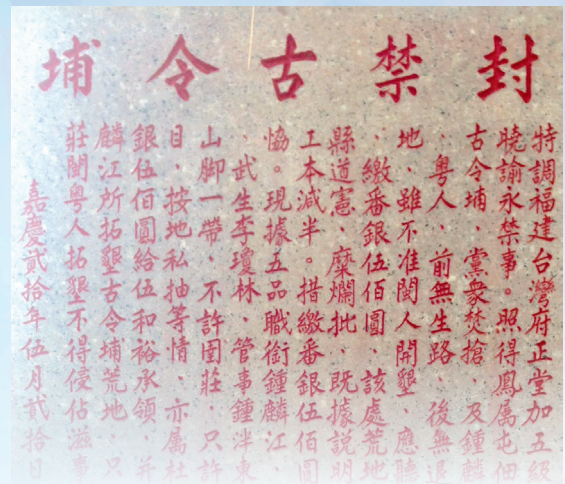 封禁古令埔
特調福建台灣府正堂加五級
曉諭永禁事。照得鳳属屯佃
古令埔、黨衆焚搶、及鍾麟
、粵人、前無生路、後無退
地、雖不准閩人開墾、應聽
、繳番銀伍佰圓、該處荒地
縣道憲、糜爛批、既據説明
工本減半。措繳番銀伍佰圓
恊。現據五品職銜鍾麟江、
、武生李瓊林、管事鍾泮東
山脚一帶、不許圍莊、只許
目、按地私抽等情、亦属杜
銀伍佰圓給伍和裕承領、并
麟江所拓墾古令埔荒地、只
莊閩粵人拓墾不得侵佔滋事
嘉慶貳拾年伍月貳拾日